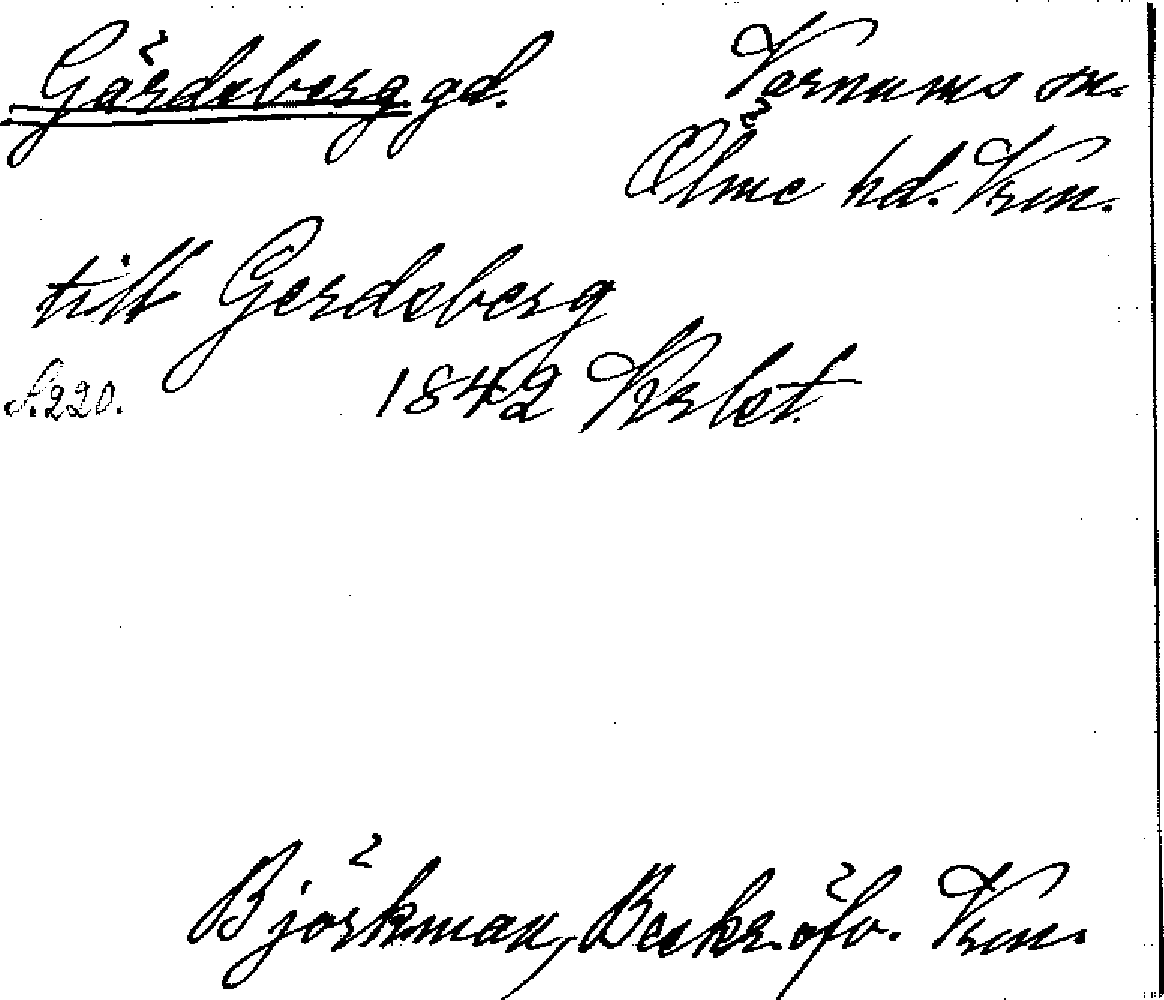 Gärdsberg gd. Varnums sn.
Ölme hd. Vrm.
till Gerdsberg
S. 220. 1842 Krlst.
Björkman, Beskr. öfv. Vrm.